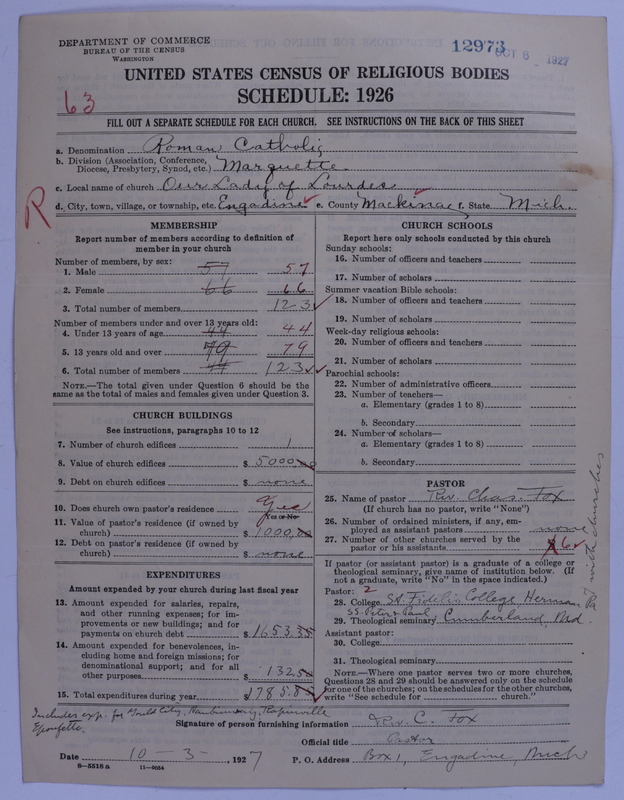 DEPARTMENT OF COMMERCE
BUREAU OF THE CENSUS
WASHINGTON
12973
OCT 6 1927
UNITED STATES CENSUS OF RELIGIOUS BODIES
SCHEDULE: 1926
63
FILL OUT A SEPARATE SCHEDULE FOR EACH CHURCH. SEE INSTRUCTIONS ON THE BACK OF THIS SHEET
a. Denomination Roman Catholic
b. Division (Association, Conference, Diocese, Presbytery, Synod, etc.) Marquette
c. Local name of church Our Lady of Lourdes
d. City, town, village, or township, etc. Engadine e. County Mackinac f. State Mich.
R
MEMBERSHIP
Report number of members according to definition of
member in your church
Number of members, by sex:
1. Male 57 57
2. Female 66 66
3. Total number of members 123
Number of members under and over 13 years old:
4. Under 13 years of age 44 44
5. 13 years old and over 79 79
6. Total number of members 123
NOTE.—The total given under Question 6 should be
same as the total of males and females given under Question 3.
CHURCH BUILDINGS
See instructions, paragraphs 10 to 12
7. Number of church edifices 1
8. Value of church edifices $ 5000
9. Debt on church edifices $ none
10. Does church own pastor's residence? Yes
Yes or No
11. Value of pastor's residence (if owned by
church) $ 1000
12. Debt on pastor's residence (if owned by
church) $ none
EXPENDITURES
Amount expended by your church during last fiscal year
13. Amount expended for salaries, repairs,
and other running expenses; for im-
provements or new buildings; and for
payments on church debt $ 1653
14. Amount expended for benevolences, in-
cluding home and foreign missions; for
denominational support; and for all
other purposes $ 132
15. Total expenditures during year $ 1785
CHURCH SCHOOLS
Report here only schools conducted by this church
Sunday schools:
16. Number of officers and teachers
17. Number of scholars
Summer vacation Bible schools:
18. Number of officers and teachers
19. Number of scholars
Week-day religious schools:
20. Number of officers and teachers
21. Number of scholars
Parochial schools:
22. Number of administrative officers
23. Number of teachers—
a. Elementary (grades 1 to 8)
b. Secondary
24. Number of scholars—
a. Elementary (grades 1 to 8)
b. Secondary
PASTOR
25. Name of pastor Rev. Chas. Fox
(If church has no pastor, write "None")
26. Number of ordained ministers, if any, em-
ployed as assistant pastors none
27. Number of other churches served by the
pastor or his assistants 6
If pastor (or assistant pastor) is a graduate of a college or
theological seminary, give name of institution below. (If
not a graduate, write "No" in the space indicated.)
Pastor: 2
28. College St. Fidelis College, Herman Pa
SS. Peter & Paul
29. Theological seminary Cumberland, Md.
Assistant pastor:
30. College
31. Theological seminary
NOTE.—Where one pastor serves two or more churches,
Questions 28 and 29 should be answered only on the schedule
for one of the churches; on the schedules for the other churches,
write "See schedule for church."
churches
Includes exp. for Gould City, Naubinway, Rapinville
Epoufette.
Signature of person furnishing information Rev. C. Fox
Official title Pastor
Date 10-3-, 1927 P. O. Address Box 1, Engadine, Mich
8—5518 a 11—9664